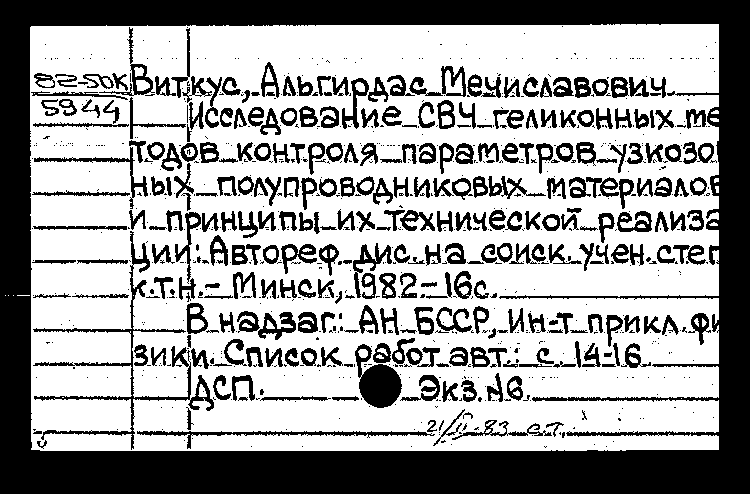 82-50К Виткус, Альгирдас Мечиславович
5944 Исследование СВЧ геликонных ме
тодов контроля параметров узкозо
ных полупроводниковых материалов
и принципы их технической реализа
ции: Автореф. дис. на соиск. учен. степ
к.т.н. - Минск, 1982. - 16с.
В надзаг.: АН БССР, Ин-т прикл. фи
зики. Список работ авт.: с. 14-16.
ДСП. Экз. №6.
21/II-83 с.т.